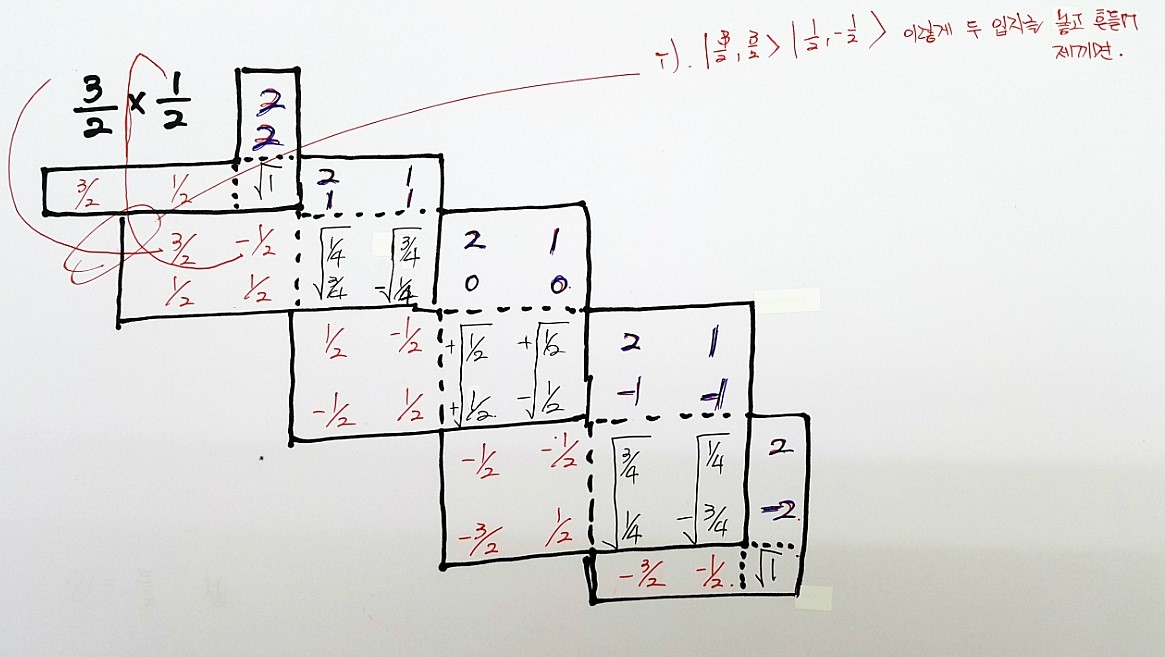 i). |3/2, 3/2> |1/2, -1/2> 이렇게 두 입자를 놓고 흔들어
제끼면.
3/2 × 1/2
2
2
3/2 1/2 √1 2 1
1 1
3/2 -1/2 √1/4 √3/4 2 1
1/2 1/2 √3/4 -√1/4 0 0
1/2 -1/2 +√1/2 +√1/2 2 1
-1/2 1/2 +√1/2 -√1/2 -1 -1
-1/2 -1/2 √3/4 √1/4 2
-3/2 1/2 √1/4 -√3/4 -2
-3/2 -1/2 √1